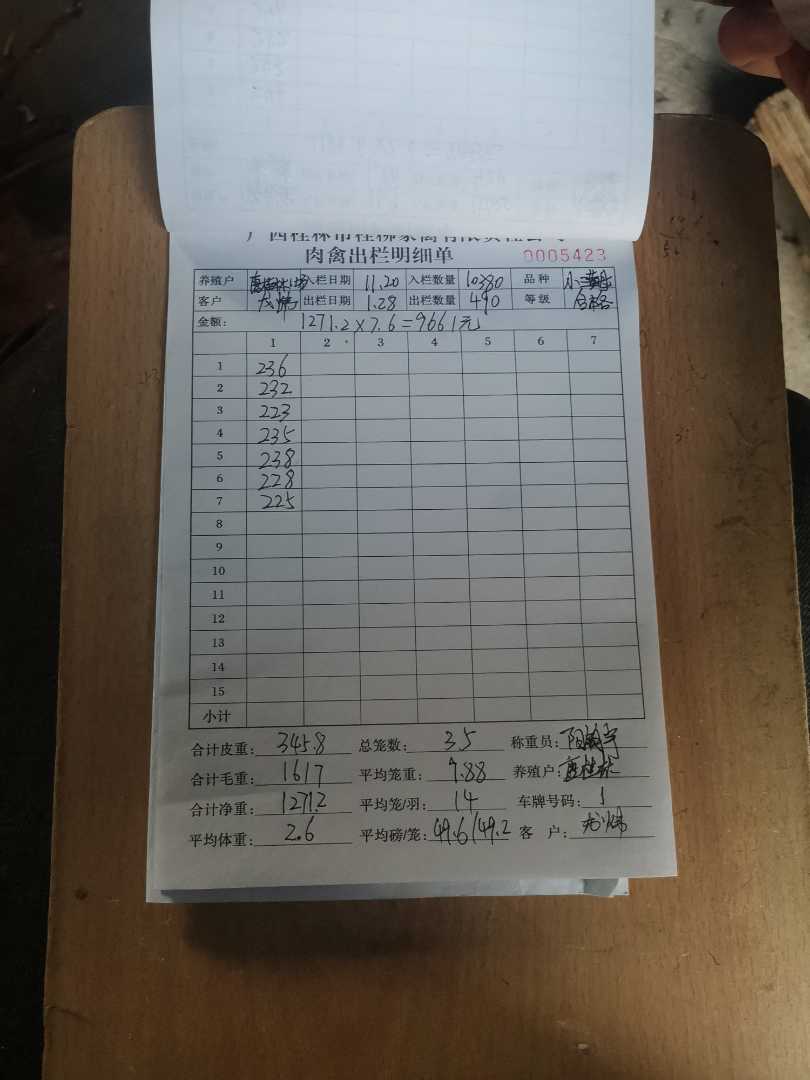 广西桂林市桂柳家禽有限责任公司
肉禽出栏明细单 0005423
养殖户 入栏日期 11.20 入栏数量 10380 品种
客户 出栏日期 1.28 出栏数量 490 等级 合格
金额: 1271.2×7.6=9661元
1 2 3 4 5 6 7
1 236
2 232
3 223
4 235
5 238
6 228
7 225
8
9
10
11
12
13
14
15
小计
合计皮重: 345.8 总笼数: 35 称重员:
合计毛重: 1617 平均笼重: 9.88 养殖户: 唐桂林
合计净重: 1271.2 平均笼/羽: 14 车牌号码: 1
平均体重: 2.6 平均磅/笼: 49.6/49.2 客 户: